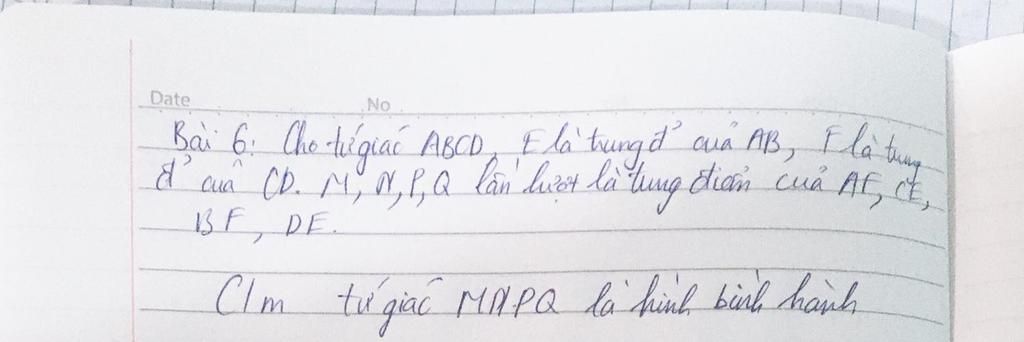 Date No
Bài 6: Cho tứ giác ABCD, E là trung đ' của AB, F là trung
đ' của CD. M, N, P, Q lần lượt là trung điểm của AF, CE,
BF, DE.
C/m tứ giác MNPQ là hình bình hành